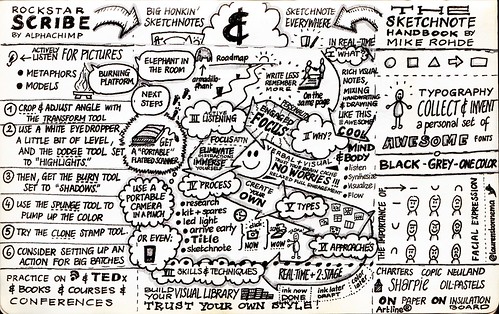 ROCKSTAR
SCRIBE
BY ALPHACHIMP
ACTIVELY
LISTEN FOR PICTURES
METAPHORS
MODELS
BURNING
PLATFORM
1 CROP & ADJUST ANGLE WITH
THE TRANSFORM TOOL
2 USE A WHITE EYEDROPPER
A LITTLE BIT OF LEVEL,
AND THE DODGE TOOL SET
TO "HIGHLIGHTS."
3 THEN, GET THE BURN TOOL
SET TO "SHADOWS."
4 USE THE SPUNGE TOOL TO
PUMP UP THE COLOR
5 TRY THE CLONE STAMP TOOL.
6 CONSIDER SETTING UP AN
ACTION FOR BIG BATCHES
PRACTICE ON TEDx
& BOOKS & COURSES &
CONFERENCES
BIG HONKIN'
SKETCHNOTES
&
SKETCHNOTE
EVERYWHERE
ELEPHANT IN
THE ROOM
Roadmap
armadillo
NEXT
STEPS
GET
A
"PORTABLE"
FLATBED SCANNER
USE A
PORTABLE
CAMERA
IN A PINCH
OR EVEN:
WRITE LESS
REMEMBER
MORE
On the
same page
IN REAL-TIME
I WHAT?
RICH VISUAL
NOTES,
MIXING
HANDWRITING
& DRAWING
LIKE THIS IS
AWESOME!
COOL
III
LISTENING
ENGAGED BY
FOCUS
II WHY?
FOCUS ATTN
ELIMINATE
DISTRACTIONS
IMMERSE
YOURSELF
VERBAL + VISUAL
NO WORRIES!!!
RELAXED FULL ENGAGEMENT
MIND
&
BODY
listen
Synthesize
Visualize
Flow
IV PROCESS
research
kit + spares
led light
arrive early
Title
sketchnote
CREATE
YOUR
OWN
V TYPES
VI APPROACHES
VII SKILLS & TECHNIQUES
REAL-TIME + 2-STAGE
ink now
DONE
NOW
ink later
DRAFT
BUILD
YOUR VISUAL LIBRARY
TRUST YOUR OWN STYLE!
THE
SKETCHNOTE
HANDBOOK BY
MIKE ROHDE
TYPOGRAPHY
COLLECT & INVENT
a personal set of
AWESOME FONTS
BLACK-GREY-ONE COLOR
THE IMPORTANCE OF
FACIAL EXPRESSION
CHARTERS COPIC NEULAND
Sharpie OIL-PASTELS
ON PAPER ON INSULATION
Artline BOARD